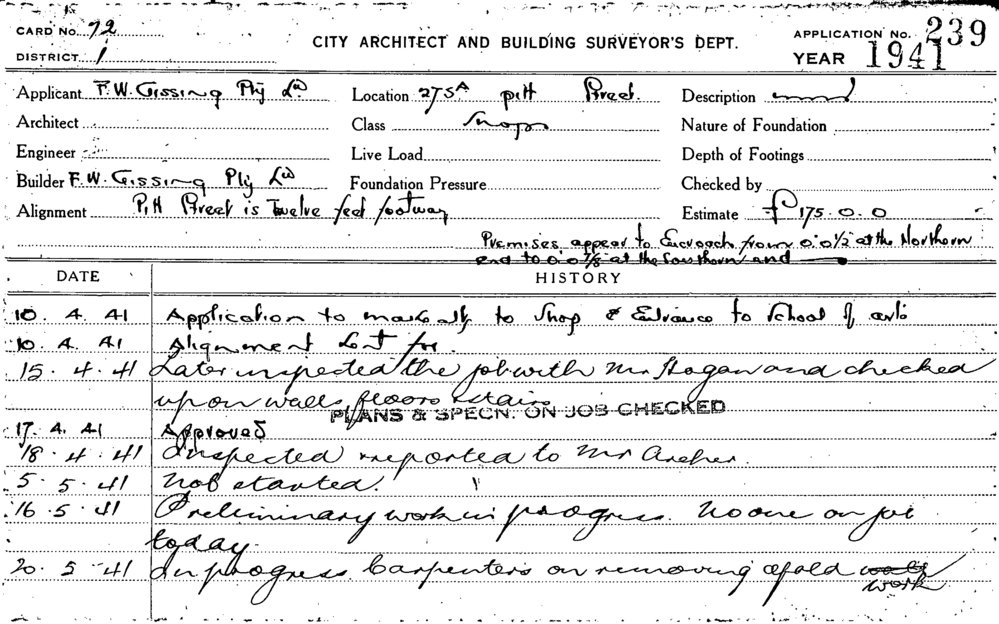 CARD No. 72
DISTRICT 1
CITY ARCHITECT AND BUILDING SURVEYOR'S DEPT.
APPLICATION No. 239
YEAR 1941
Applicant F.W. Gissing Pty Ld Location 275A Pitt Street. Description
Architect Class Shops Nature of Foundation
Engineer Live Load Depth of Footings
Builder F.W. Gissing Pty Ld Foundation Pressure Checked by
Alignment Pitt Street is Twelve feet footway Estimate £175.0.0
Premises appear to Encroach from 0.0 1/2 at the Northern
end to 0.0 7/8 at the Southern end
DATE HISTORY
10. 4. 41 Application to make alts to Shop & Entrance to School of arts
10. 4. 41 Alignment Sent for.
15. 4. 41 Later inspected the job with Mr Hogan and checked
upon walls floors & stairs
PLANS & SPECN. ON JOB CHECKED
17. 4. 41 Approved
18. 4. 41 Inspected & reported to Mr Archer.
5. 5. 41 Not started.
16. 5. 41 Preliminary work in progress. No one on job
today.
20. 5. 41 In progress. Carpenters on removing of old
work